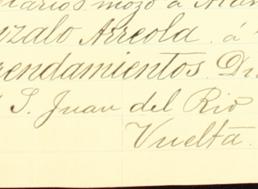 mozo á
nzalo Arreola. á
rendamientos.
S. Juan del Rio
Vuelta.